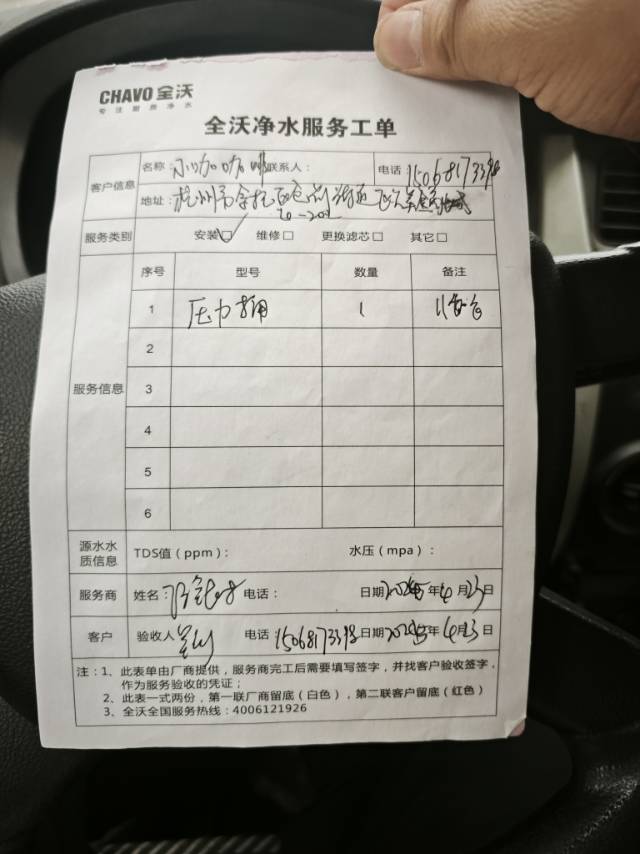 CHAVO 全沃
专注厨房净水
全沃净水服务工单
客户信息
名称：小咖咖啡 联系人： 电话 15068173398
地址：杭州市余杭区仓前街道
服务类别 安装☑ 维修□ 更换滤芯□ 其它□
服务信息
序号 型号 数量 备注
1 压力桶 1
2
3
4
5
6
源水水质信息 TDS值（ppm）： 水压（mpa）：
服务商 姓名： 电话： 日期 2025年4月23日
客户 验收人 电话 15068173398 日期 2025年4月23日
注：1、此表单由厂商提供，服务商完工后需要填写签字，并找客户验收签字，
作为服务验收的凭证；
2、此表一式两份，第一联厂商留底（白色），第二联客户留底（红色）
3、全沃全国服务热线：4006121926